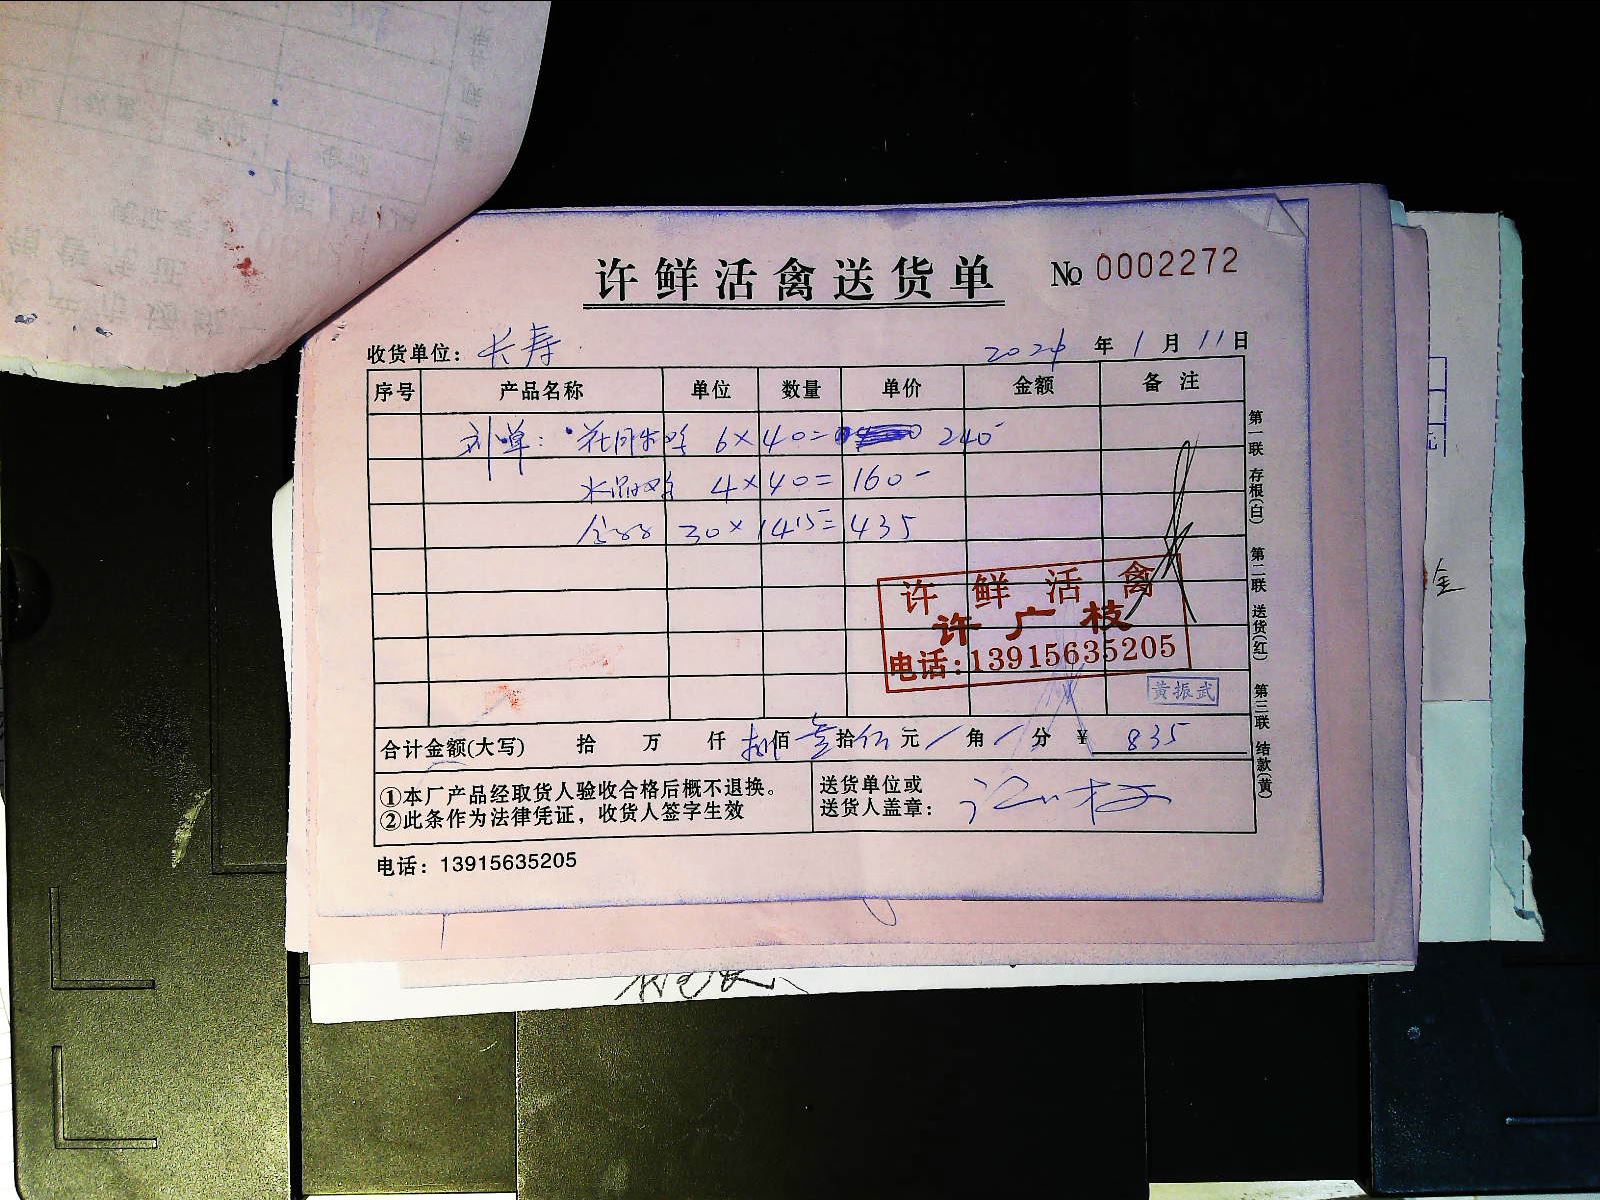 许鲜活禽送货单 № 0002272
收货单位：长寿 2024 年 1 月 11 日
序号 产品名称 单位 数量 单价 金额 备注
6×40= 240-
4×40= 160-
30×14.5= 435
许鲜活禽
许广枝
电话：13915635205
黄振武
合计金额(大写) 拾 万 仟 捌佰 叁拾伍元 / 角 / 分 ¥ 835
①本厂产品经取货人验收合格后概不退换。
②此条作为法律凭证，收货人签字生效
送货单位或
送货人盖章：
电话：13915635205
第一联 存根(白) 第二联 送货(红) 第三联 结款(黄)